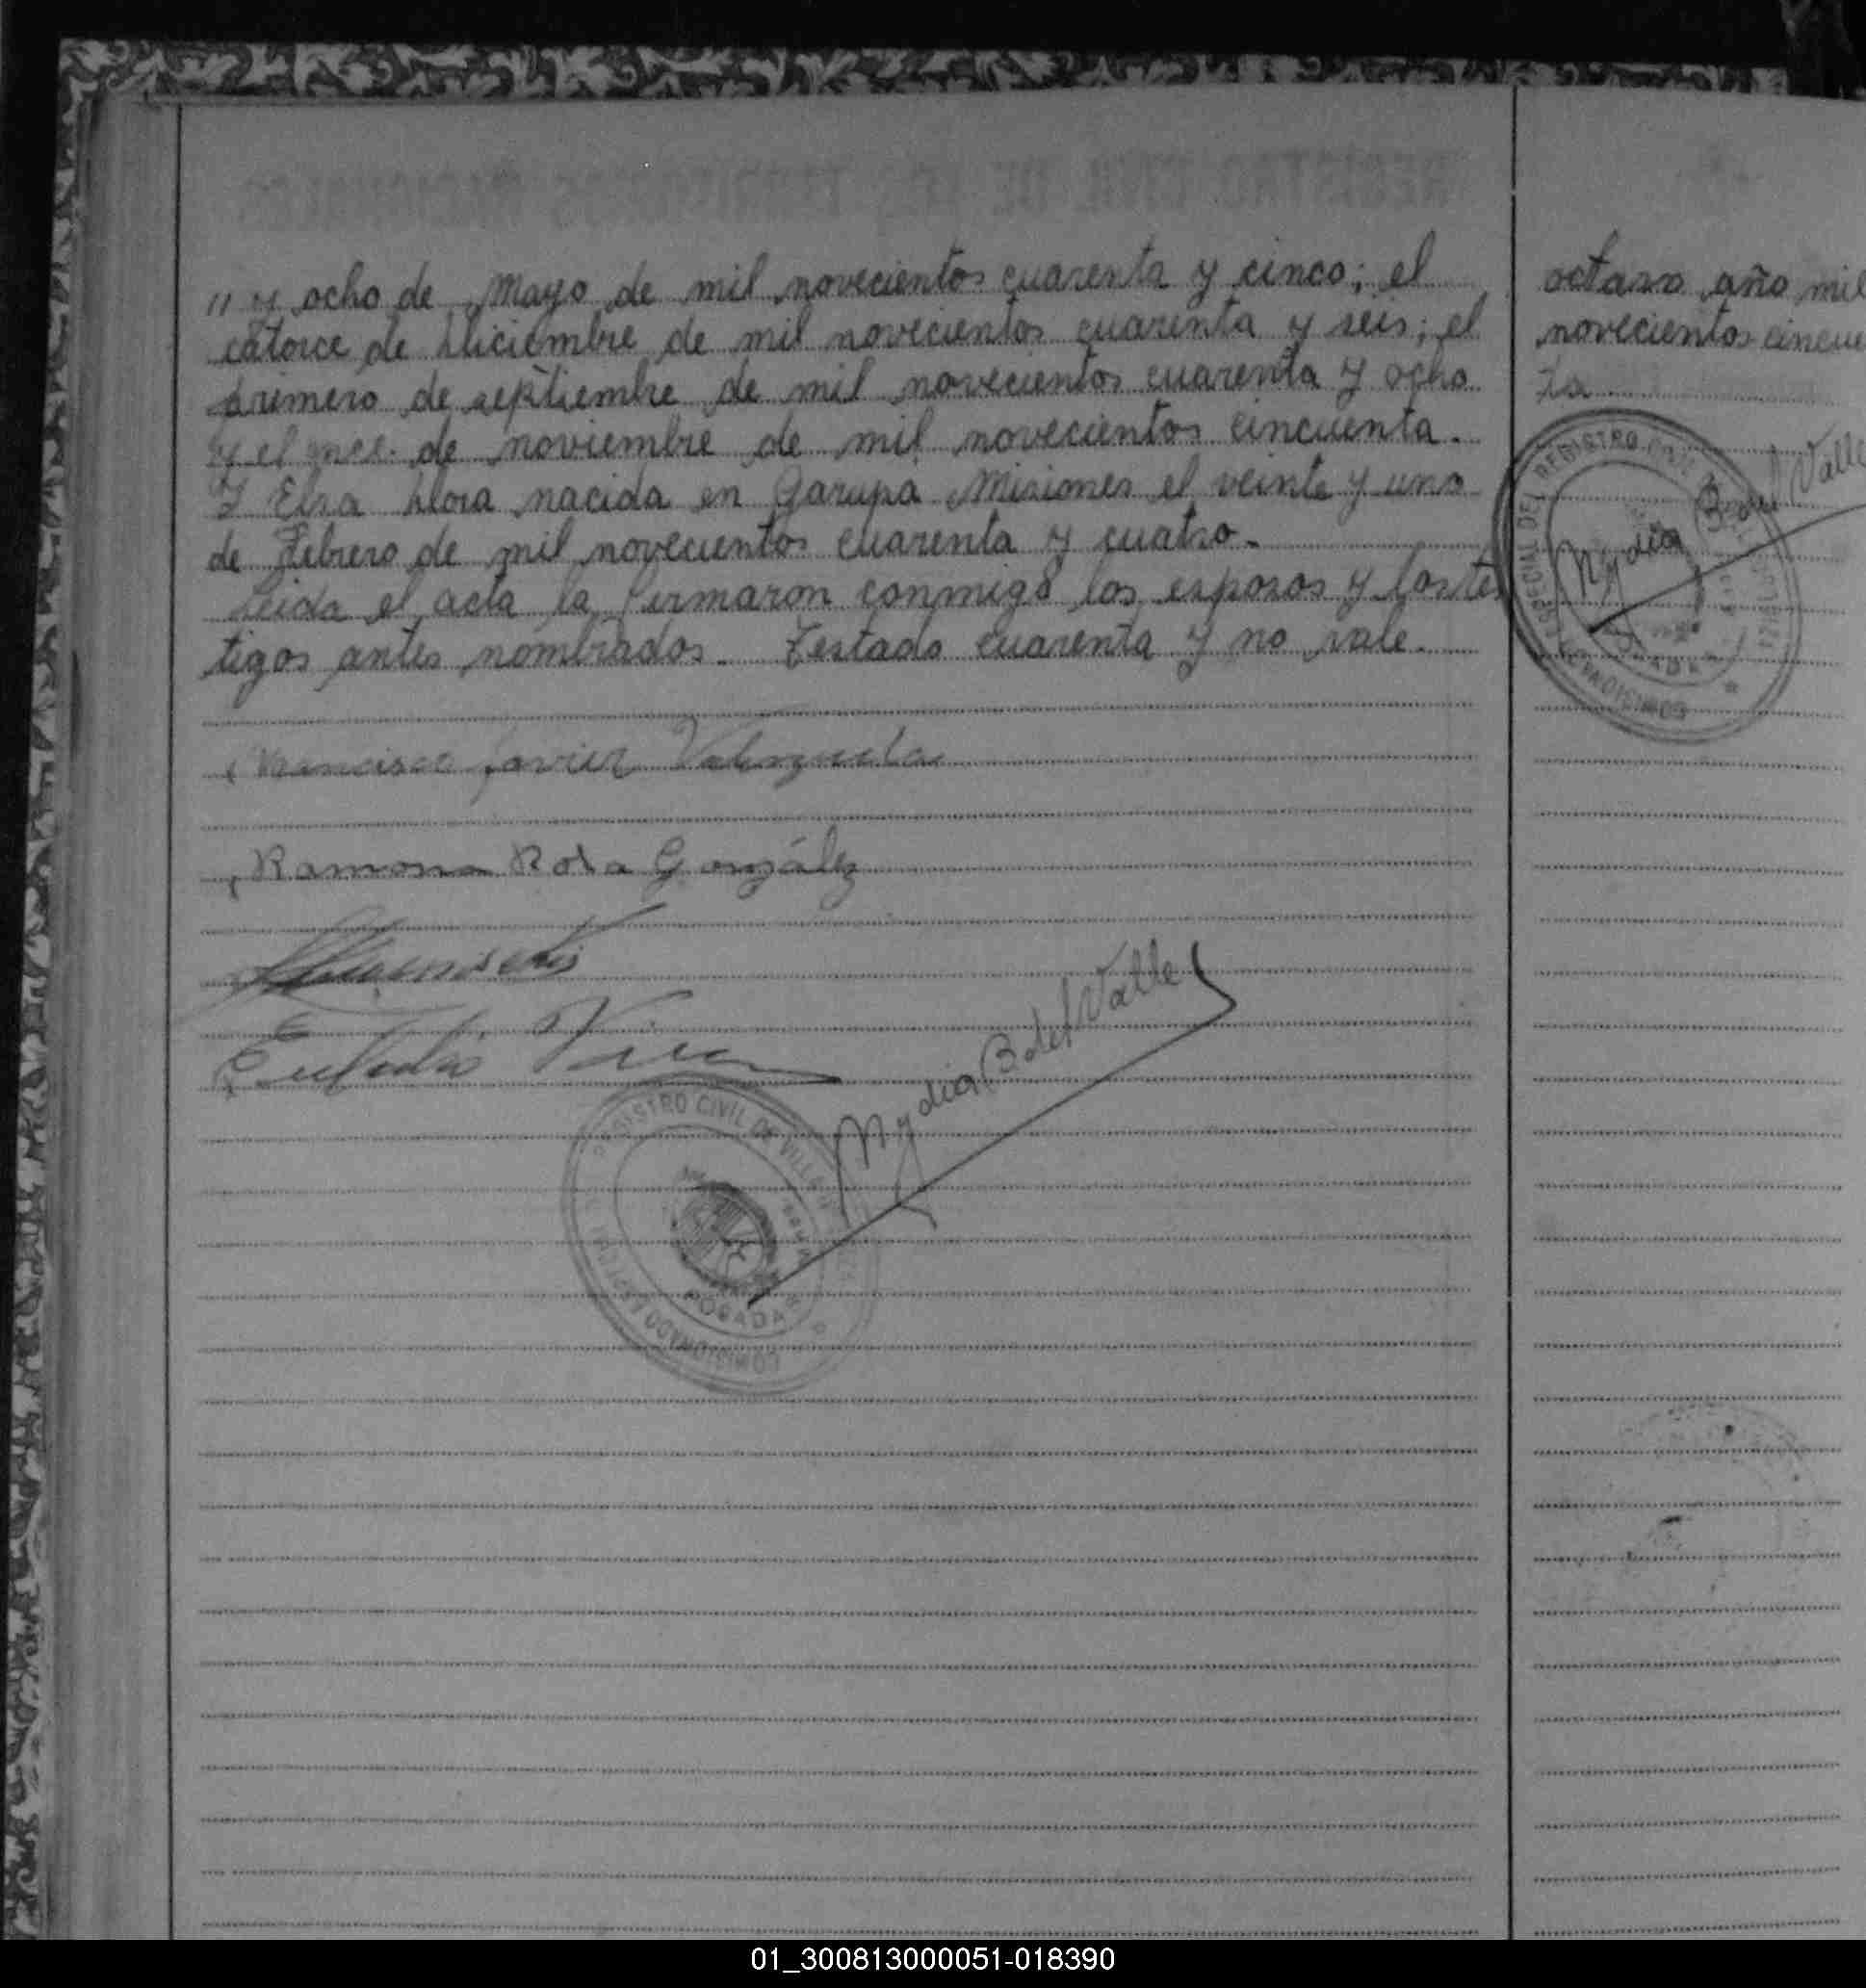 " y ocho de Mayo de mil novecientos cuarenta y cinco; el
catorce de Diciembre de mil novecientos cuarenta y seis; el
primero de septiembre de mil novecientos cuarenta y ocho
y el once de noviembre de mil novecientos cincuenta.
Y Elsa Dora nacida en Garupa Misiones el veinte y uno
de Febrero de mil novecientos cuarenta y cuatro.
Leida el acta la firmaron conmigo los esposos y los tes
tigos antes nombrados. Testado cuarenta y no vale.
Francisco Javier Valenzuela
Ramona Rosa González
Mydia B del Valle
REGISTRO CIVIL DE VILLA
POSADAS
COMISIONADO ESPECIAL
octavo año mil
novecientos cincuen
ta
Mydia B del Valle
COMISIONADO ESPECIAL DEL REGISTRO CIVIL
POSADAS
01_300813000051-018390